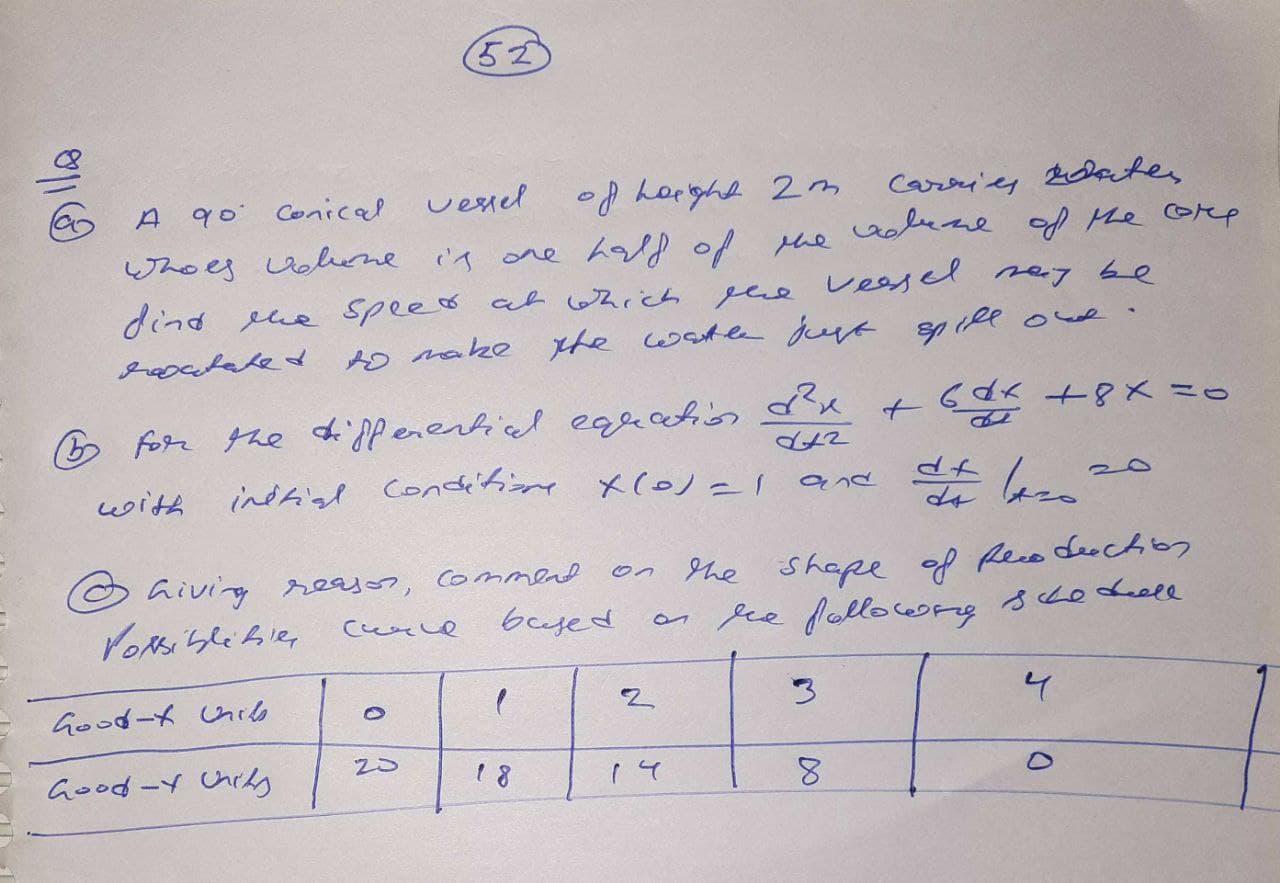 52
Q8
(a) A 90° conical vessel of height 2m carries water
whoes volume is one half of the volume of the cone
find the speed at which the vessel may be
roatated to make the water just spill out.
(b) for the differential equation d²x/dt² + 6 dx/dt + 8x = 0
with initial conditions x(0) = 1 and dx/dt |t=0 = 0
(c) Giving reason, comment on the shape of Production
Possiblities curve based on the following schedule
Good-x Units 0 1 2 3 4
Good-y Units 20 18 14 8 0